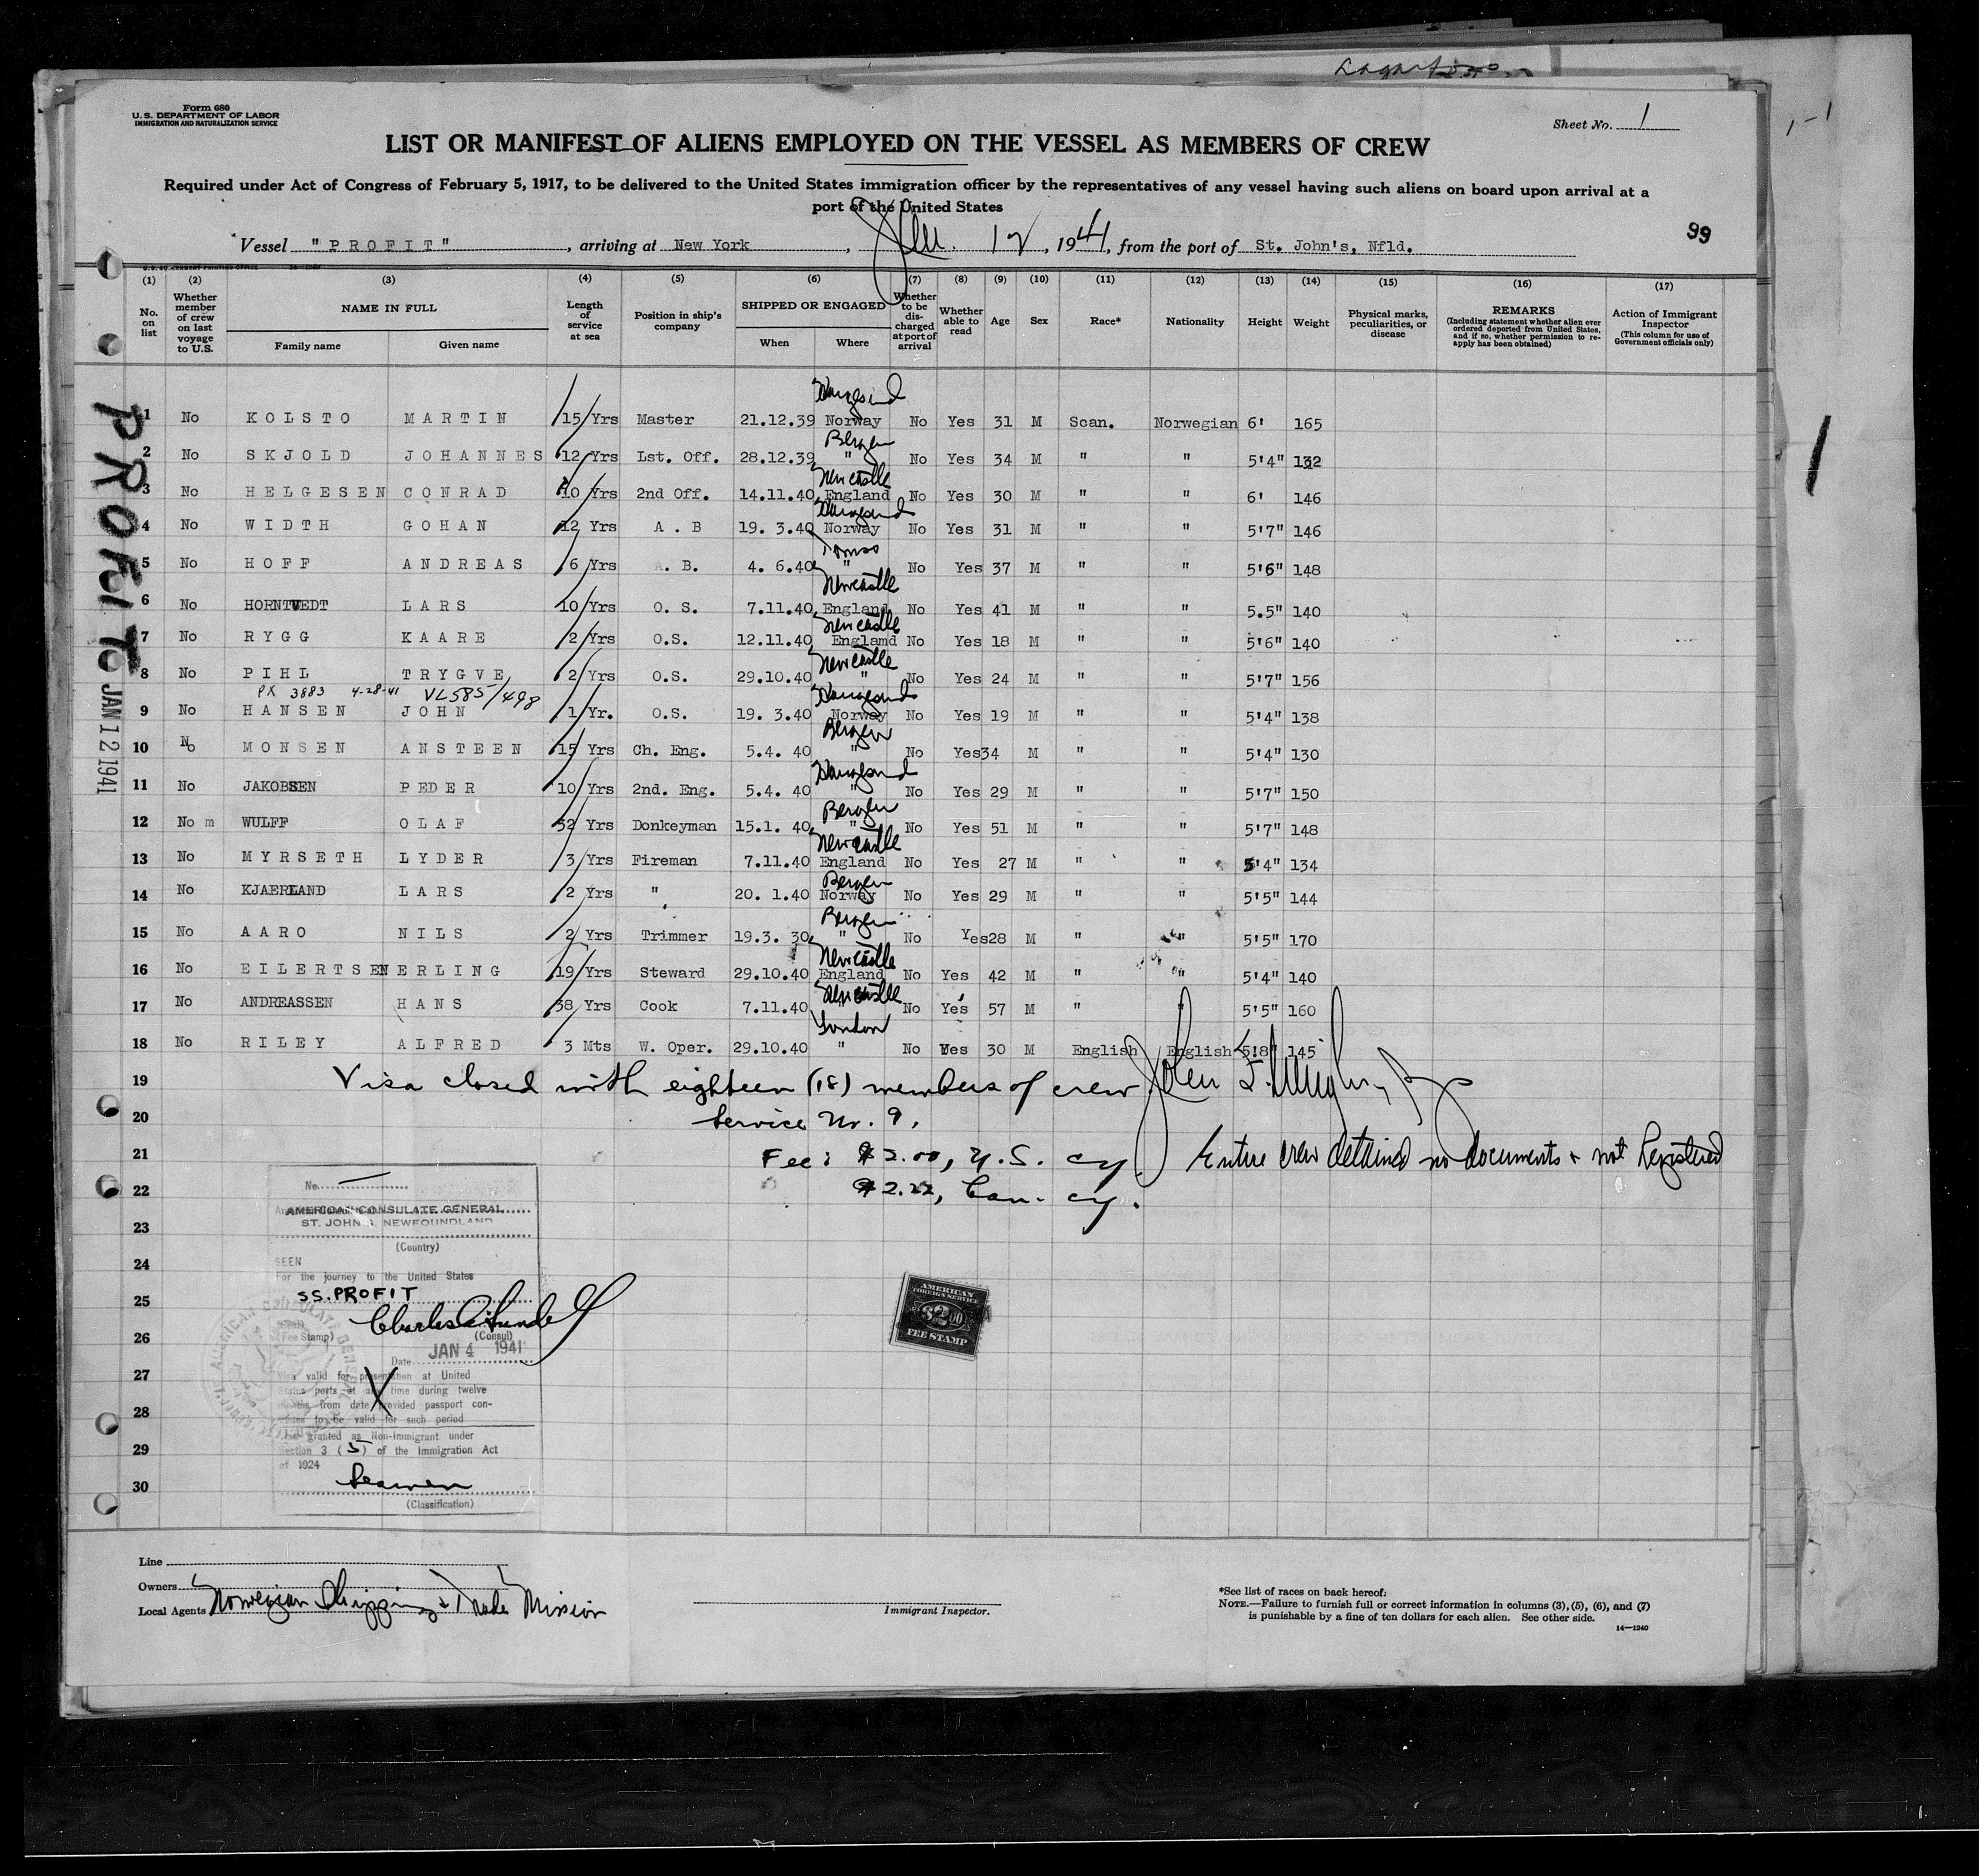 Form 680
U.S. DEPARTMENT OF LABOR
IMMIGRATION AND NATURALIZATION SERVICE
Sheet No. 1
LIST OR MANIFEST OF ALIENS EMPLOYED ON THE VESSEL AS MEMBERS OF CREW
Required under Act of Congress of February 5, 1917, to be delivered to the United States immigration officer by the representatives of any vessel having such aliens on board upon arrival at a
port of the United States
99
Vessel "PROFIT", arriving at New York, Jan. 12, 1941, from the port of St. John's, Nfld.
(1) (2) (3) (4) (5) (6) (7) (8) (9) (10) (11) (12) (13) (14) (15) (16) (17)
No. on list
Whether member of crew on last voyage to U.S.
NAME IN FULL
Family name Given name
Length of service at sea
Position in ship's company
SHIPPED OR ENGAGED
When Where
Whether to be discharged at port of arrival
Whether able to read
Age Sex Race* Nationality Height Weight
Physical marks, peculiarities, or disease
REMARKS
(Including statement whether alien ever ordered deported from United States, and if so, whether permission to re-apply has been obtained)
Action of Immigrant Inspector
(This column for use of Government officials only)
1 No KOLSTO MARTIN 15 Yrs Master 21.12.39 Haugesund Norway No Yes 31 M Scan. Norwegian 6' 165
2 No SKJOLD JOHANNES 12 Yrs Lst. Off. 28.12.39 Bergen " No Yes 34 M " " 5'4" 132
3 No HELGESEN CONRAD 10 Yrs 2nd Off. 14.11.40 Newcastle England No Yes 30 M " " 6' 146
4 No WIDTH GOHAN 12 Yrs A.B 19. 3.40 Haugesund Norway No Yes 31 M " " 5'7" 146
5 No HOFF ANDREAS 6 Yrs A. B. 4. 6.40 " No Yes 37 M " " 5'6" 148
6 No HORNTVEDT LARS 10 Yrs O. S. 7.11.40 Newcastle England No Yes 41 M " " 5.5" 140
7 No RYGG KAARE 2 Yrs O.S. 12.11.40 Newcastle England No Yes 18 M " " 5'6" 140
8 No PIHL TRYGVE 2 Yrs O.S. 29.10.40 Newcastle " No Yes 24 M " " 5'7" 156
PX 3883 4-28-41 VL585/498
9 No HANSEN JOHN 1 Yr. O.S. 19. 3.40 Haugesund Norway No Yes 19 M " " 5'4" 138
10 No MONSEN ANSTEEN 15 Yrs Ch. Eng. 5.4. 40 Bergen " No Yes 34 M " " 5'4" 130
11 No JAKOBSEN PEDER 10 Yrs 2nd. Eng. 5.4. 40 Haugesund " No Yes 29 M " " 5'7" 150
12 No m WULFF OLAF 32 Yrs Donkeyman 15.1. 40 Bergen " No Yes 51 M " " 5'7" 148
13 No MYRSETH LYDER 3 Yrs Fireman 7.11.40 Newcastle England No Yes 27 M " " 5'4" 134
14 No KJAERLAND LARS 2 Yrs " 20. 1.40 Bergen Norway No Yes 29 M " " 5'5" 144
15 No AARO NILS 2 Yrs Trimmer 19.3. 30 Bergen " No Yes 28 M " " 5'5" 170
16 No EILERTSEN ERLING 19 Yrs Steward 29.10.40 Newcastle England No Yes 42 M " " 5'4" 140
17 No ANDREASSEN HANS 38 Yrs Cook 7.11.40 Newcastle " No Yes 57 M " " 5'5" 160
18 No RILEY ALFRED 3 Mts W. Oper. 29.10.40 London " No Yes 30 M English English 5'8" 145
19 Visa closed with eighteen (18) members of crew
20 Service No. 9.
21 Fee: $2.00, U.S. cy. Entire crew detained no documents & not Registered
22 $2.22, Can. cy.
23
24
25
26
27
28
29
30
No.
AMERICAN CONSULATE GENERAL
ST. JOHN'S, NEWFOUNDLAND
(Country)
SEEN
For the journey to the United States
SS. PROFIT
(Fee Stamp) (Consul)
Date JAN 4 1941
Visa valid for presentation at United
States ports at any time during twelve
months from date provided passport con-
tinues to be valid for such period
Visa granted as Non-Immigrant under
Section 3 (5) of the Immigration Act
of 1924
Seamen
(Classification)
AMERICAN
FOREIGN SERVICE
$2.00
FEE STAMP
PROFIT
JAN 12 1941
Line
Owners
Local Agents Norwegian Shipping & Trade Mission
Immigrant Inspector.
*See list of races on back hereof:
NOTE.—Failure to furnish full or correct information in columns (3), (5), (6), and (7)
is punishable by a fine of ten dollars for each alien. See other side.
14—1240